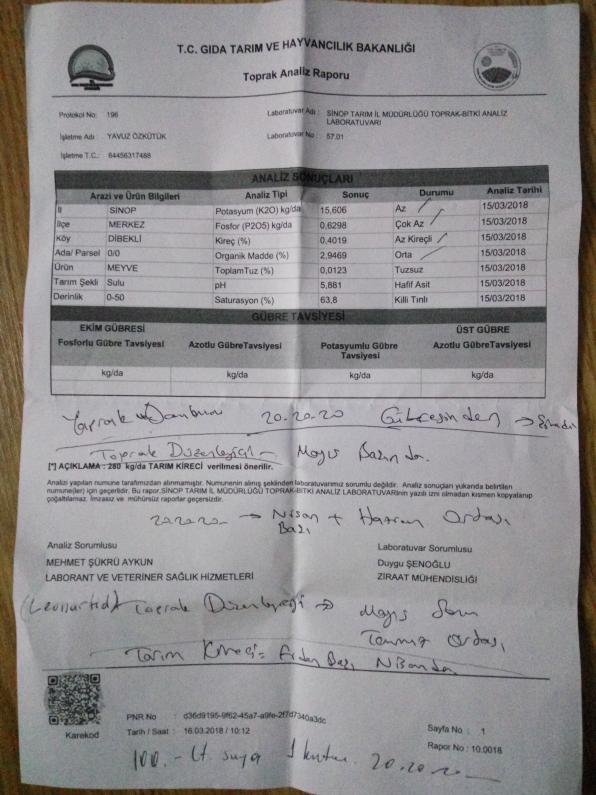 T.C. GIDA TARIM VE HAYVANCILIK BAKANLIĞI
Toprak Analiz Raporu
Protokol No: 196
Laboratuvar Adı : SİNOP TARIM İL MÜDÜRLÜĞÜ TOPRAK-BİTKİ ANALİZ LABORATUVARI
İşletme Adı : YAVUZ ÖZKÜTÜK
Laboratuvar No : 57.01
İşletme T.C.: 64456317488
ANALİZ SONUÇLARI
Arazi ve Ürün Bilgileri Analiz Tipi Sonuç Durumu Analiz Tarihi
İl SİNOP Potasyum (K2O) kg/da 15,606 Az 15/03/2018
İlçe MERKEZ Fosfor (P2O5) kg/da 0,6298 Çok Az 15/03/2018
Köy DİBEKLİ Kireç (%) 0,4019 Az Kireçli 15/03/2018
Ada/ Parsel 0/0 Organik Madde (%) 2,9469 Orta 15/03/2018
Ürün MEYVE ToplamTuz (%) 0,0123 Tuzsuz 15/03/2018
Tarım Şekli Sulu pH 5,881 Hafif Asit 15/03/2018
Derinlik 0-50 Saturasyon (%) 63,8 Killi Tınlı 15/03/2018
GÜBRE TAVSİYESİ
EKİM GÜBRESİ ÜST GÜBRE
Fosforlu Gübre Tavsiyesi Azotlu GübreTavsiyesi Potasyumlu Gübre Tavsiyesi Azotlu GübreTavsiyesi
kg/da kg/da kg/da kg/da
Yaprak 20.20.20 Gübresinden →
Toprak Düzenleyici - Mayıs Başında.
[*] AÇIKLAMA : 280 kg/da TARIM KİRECİ verilmesi önerilir.
Analizi yapılan numune tarafımızdan alınmamıştır. Numunenin alınış şeklinden laboratuvarımız sorumlu değildir. Analiz sonuçları yukarıda belirtilen
numune(ler) için geçerlidir. Bu rapor,SİNOP TARIM İL MÜDÜRLÜĞÜ TOPRAK-BİTKİ ANALİZ LABORATUVARInin yazılı izni olmadan kısmen kopyalanıp
çoğaltılamaz. İmzasız ve mühürsüz raporlar geçersizdir.
20.20.20 → Nisan Başı + Haziran Ortası
Analiz Sorumlusu
Laboratuvar Sorumlusu
MEHMET ŞÜKRÜ AYKUN
Duygu ŞENOĞLU
LABORANT VE VETERİNER SAĞLIK HİZMETLERİ
ZİRAAT MÜHENDİSLİĞİ
Toprak Düzenleyici → Mayıs
Temmuz Ortası
Tarım Kireci = Nisanda
PNR No : d36d9195-9f62-45a7-a9fe-2f7d7340a3dc
Karekod
Tarih / Saat : 16.03.2018 / 10:12
Sayfa No : 1
Rapor No : 10.0018
100.- Lt. suya 1 kutu. 20.20.20